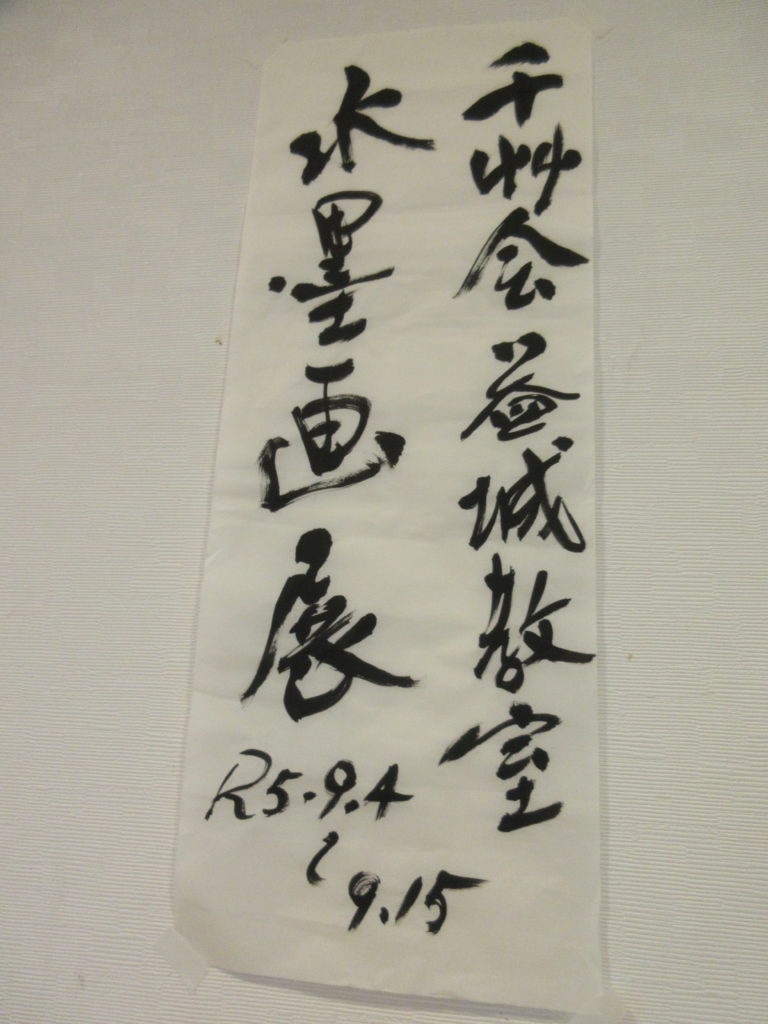 千艸会益城教室
水墨画展
R5.9.4
〜
9.15